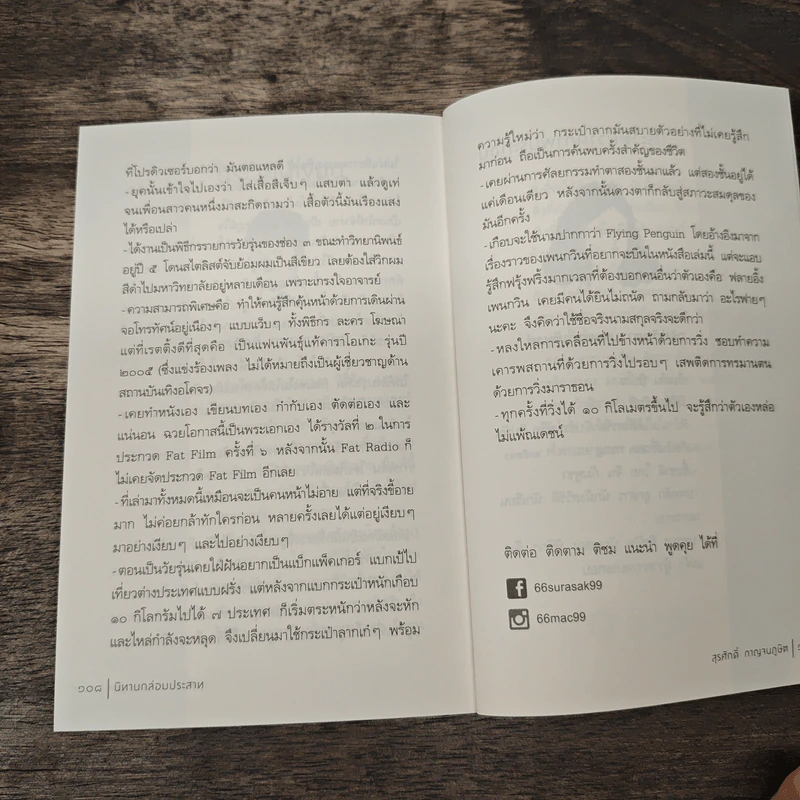 ที่โปรดิวเซอร์บอกว่า มันตอแหลดี
-ยุคนั้นเข้าใจไปเองว่า ใส่เสื้อสีเจ็บๆ แสบตา แล้วดูเท่
จนเพื่อนสาวคนหนึ่งมาสะกิดถามว่า เสื้อตัวนี้มันเรืองแสง
ได้หรือเปล่า
-ได้งานเป็นพิธีกรรายการวัยรุ่นของช่อง ๓ ขณะทำวิทยานิพนธ์
อยู่ปี ๕ โดนสไตลิสต์จับย้อมผมเป็นสีเขียว เลยต้องใส่วิกผม
สีดำไปมหาวิทยาลัยอยู่หลายเดือน เพราะเกรงใจอาจารย์
-ความสามารถพิเศษคือ ทำให้คนรู้สึกคุ้นหน้าด้วยการเดินผ่าน
จอโทรทัศน์อยู่เนืองๆ แบบแว็บๆ ทั้งพิธีกร ละคร โฆษณา
แต่ที่เรตติ้งดีที่สุดคือ เป็นแฟนพันธุ์แท้คาราโอเกะ รุ่นปี
๒๐๐๕ (ซึ่งแข่งร้องเพลง ไม่ได้หมายถึงเป็นผู้เชี่ยวชาญด้าน
สถานบันเทิงอโคจร)
-เคยทำหนังเอง เขียนบทเอง กำกับเอง ตัดต่อเอง และ
แน่นอน ฉวยโอกาสนี้เป็นพระเอกเอง ได้รางวัลที่ ๒ ในการ
ประกวด Fat Film ครั้งที่ ๖ หลังจากนั้น Fat Radio ก็
ไม่เคยจัดประกวด Fat Film อีกเลย
-ที่เล่ามาทั้งหมดนี้เหมือนจะเป็นคนหน้าไม่อาย แต่ที่จริงขี้อาย
มาก ไม่ค่อยกล้าทักใครก่อน หลายครั้งเลยได้แต่อยู่เงียบๆ
มาอย่างเงียบๆ และไปอย่างเงียบๆ
-ตอนเป็นวัยรุ่นเคยใฝ่ฝันอยากเป็นแบ็กแพ็คเกอร์ แบกเป้ไป
เที่ยวต่างประเทศแบบฝรั่ง แต่หลังจากแบกกระเป๋าหนักเกือบ
๑๐ กิโลกรัมไปได้ ๗ ประเทศ ก็เริ่มตระหนักว่าหลังจะหัก
และไหล่กำลังจะหลุด จึงเปลี่ยนมาใช้กระเป๋าลากเก๋ๆ พร้อม
๑๐๘ | นิทานกล่อมประสาท
ความรู้ใหม่ว่า กระเป๋าลากมันสบายตัวอย่างที่ไม่เคยรู้สึก
มาก่อน ถือเป็นการค้นพบครั้งสำคัญของชีวิต
-เคยผ่านการศัลยกรรมทำตาสองชั้นมาแล้ว แต่สองชั้นอยู่ได้
แค่เดือนเดียว หลังจากนั้นดวงตาก็กลับสู่สภาวะสมดุลของ
มันอีกครั้ง
-เกือบจะใช้นามปากกาว่า Flying Penguin โดยอ้างอิงมาจาก
เรื่องราวของเพนกวินที่อยากจะบินในหนังสือเล่มนี้ แต่จะแอบ
รู้สึกฟรุ้งฟริ้งมากเวลาที่ต้องบอกคนอื่นว่าตัวเองคือ ฟลายอิ้ง
เพนกวิน เคยมีคนได้ยินไม่ถนัด ถามกลับมาว่า อะไรฟายๆ
นะคะ จึงคิดว่าใช้ชื่อจริงนามสกุลจริงจะดีกว่า
-หลงใหลการเคลื่อนที่ไปข้างหน้าด้วยการวิ่ง ชอบทำความ
เคารพสถานที่ด้วยการวิ่งไปรอบๆ เสพติดการทรมานตน
ด้วยการวิ่งมาราธอน
-ทุกครั้งที่วิ่งได้ ๑๐ กิโลเมตรขึ้นไป จะรู้สึกว่าตัวเองหล่อ
ไม่แพ้ณเดชน์
ติดต่อ ติดตาม ติชม แนะนำ พูดคุย ได้ที่
66surasak99
66mac99
สุรศักดิ์ กาญจนภูษิต |